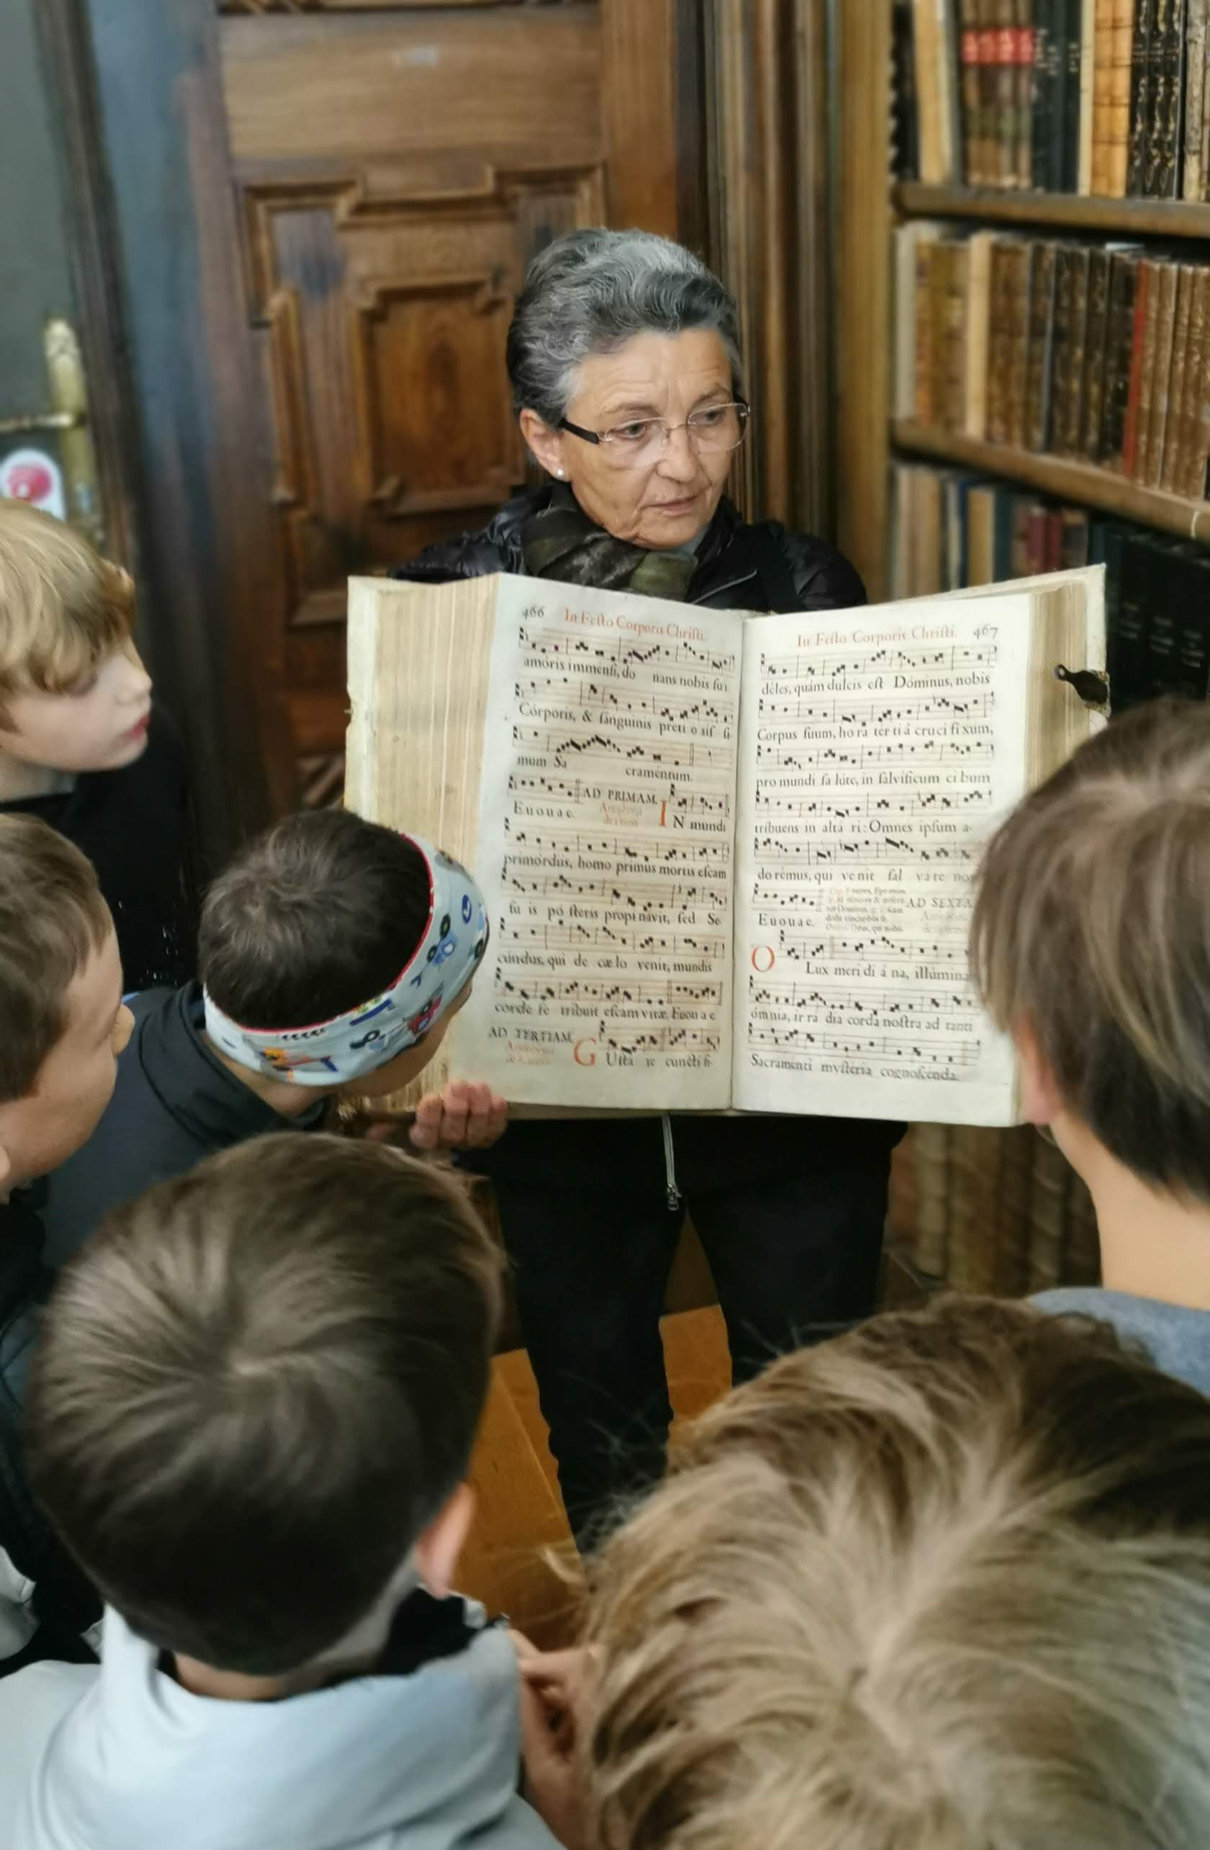 466 In Festo Corporis Christi.
amóris immensi, do nans nobis sui
Córporis, & sánguinis preti o sis si
mum Sa craméntum.
AD PRIMAM
Euouae. IN mundi
primórdiis, homo primus mortis escam
su is pó steris propi návit, sed Se
cúndus, qui de cælo venit, mundis
corde se tribuit escam vitæ. Euouae
AD TERTIAM
GUsta te cuncti fi-
In Festo Corporis Christi. 467
déles, quàm dulcis est Dóminus, nobis
Corpus suum, ho rá ter ti â cru ci fi xum,
pro mundi sa lúte, in salvíficum ci bum
tribuens in altá ri: Omnes ipsum a-
do rémus, qui ve nit sal vá re nos
Euouae. AD SEXTA
O Lux meri di á na, illúmina
ómnia, ir rá dia corda nostra ad tanti
Sacramenti mystéria cognoscénda.